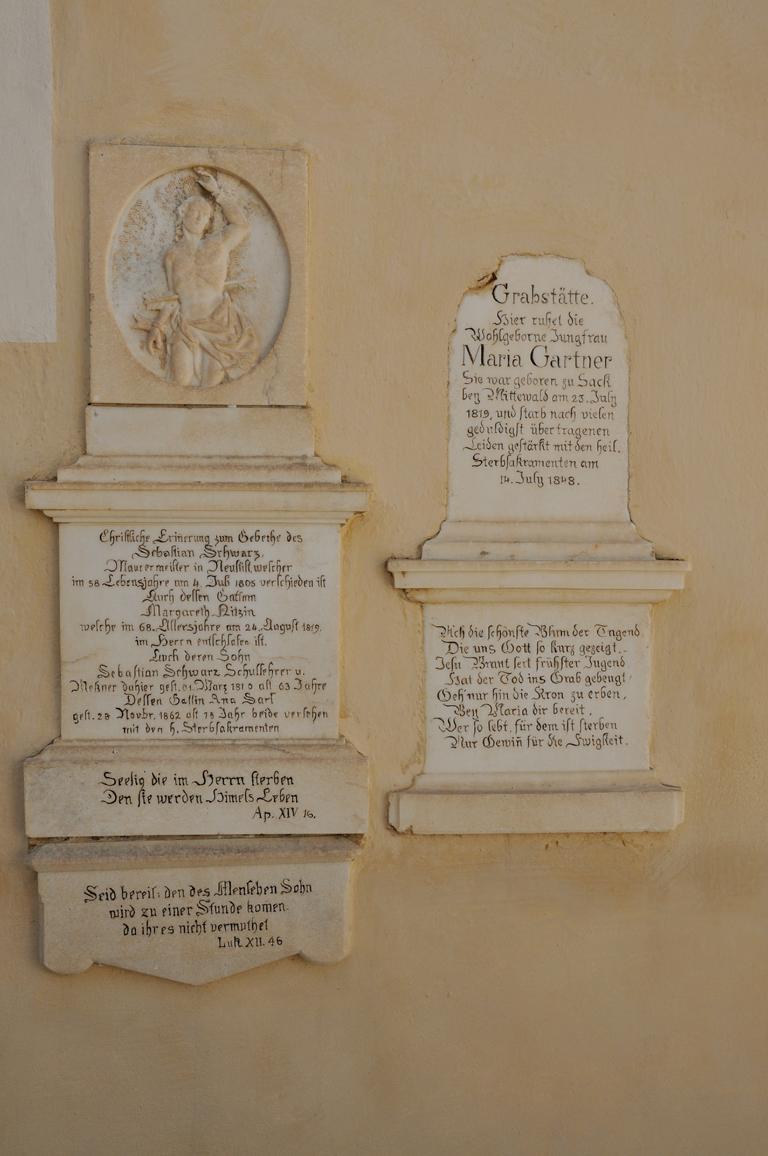 Christliche Erinerung zum Gebethe des
Sebastian Schwarz,
Maurermeister in Neustift welcher
im 58 Lebensjahre am 4. Juli 1805 verschieden ist
Auch dessen Gattinn
Margareth Nitzin
welche im 68. Altersjahre am 24. August 1819.
im Herrn entschlafen ist.
Auch deren Sohn
Sebastian Schwarz Schullehrer u.
Meßner dahier gest. 01. März 1810 alt 63 Jahre
Dessen Gattin Ana Sarl
gest. 28 Novbr. 1862 alt 75 Jahr beide versehen
mit den h. Sterbsakramenten
Seelig die im Herrn sterben
Den sie werden Himels Leben
Ap. XIV 16.
Seid bereit: den des Menschen Sohn
wird zu einer Stunde komen.
da ihr es nicht vermuthet
Luk XII. 46
Grabstätte.
Hier ruhet die
Wohlgeborne Jungfrau
Maria Gartner
Sie war geboren zu Sack
bey Mittewald am 23. July
1819, und starb nach vielen
geduldigst übertragenen
Leiden gestärkt mit den heil.
Sterbsakramenten am
14. July 1848.
Ach die schönste Blum der Tugend.
Die uns Gott so kurz gezeigt.
Jesu Braut seit frühster Jugend
Hat der Tod ins Grab gebeugt!
Geh' nur hin die Kron zu erben,
Bey Maria dir bereit,
Wer so lebt, für dem ist sterben
Nur Gewiñ für die Ewigkeit.